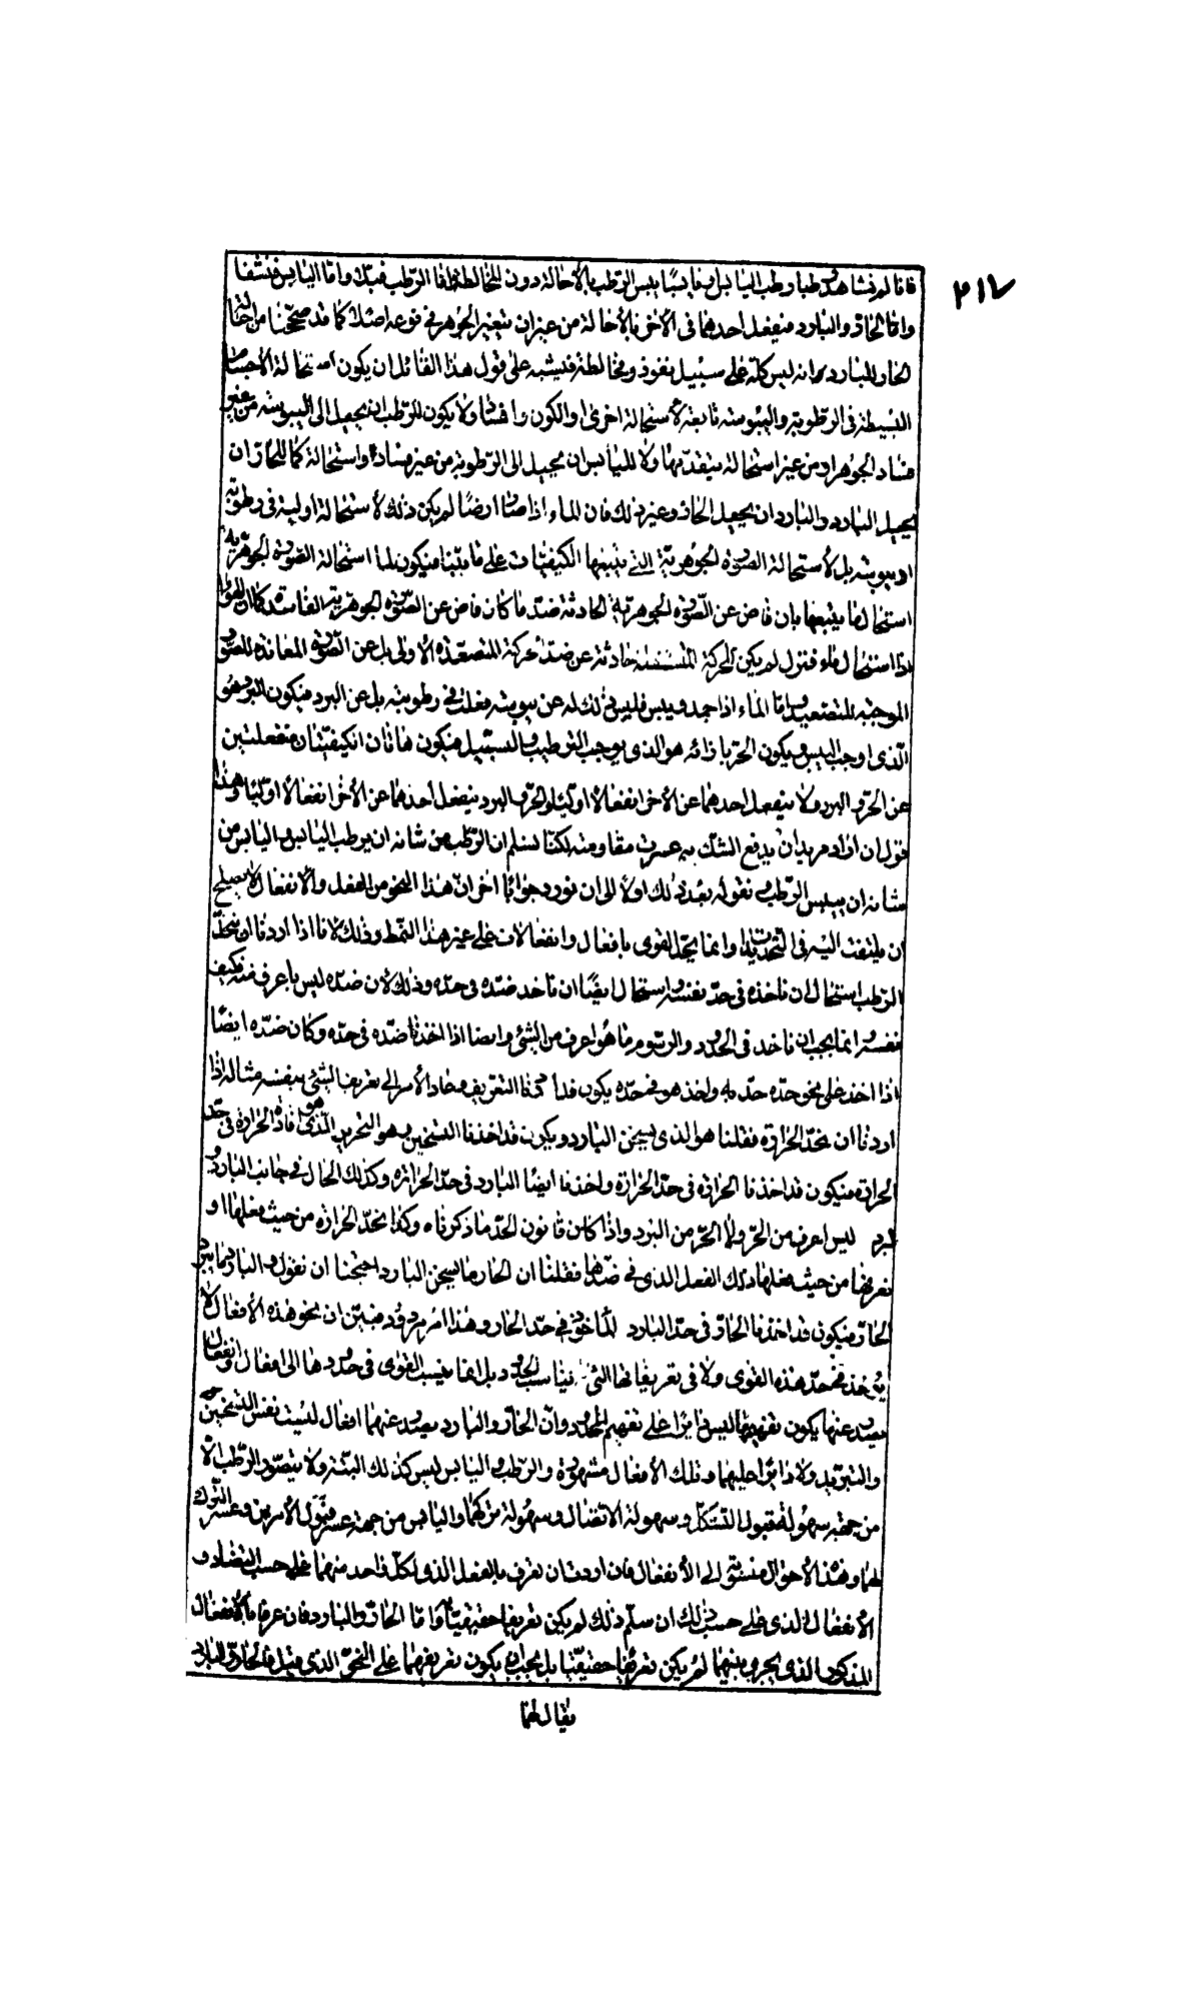 ٢١٧
فانا لم نشاهد رطبا رطب اليابس او يابسا يبس الرطب بالاحالة دون المخالطة اما الرطب فبلة واما اليابس فنشفا
واما الحار والبارد فينفعل احدهما فى الاخر بالاحالة من غير ان يتغير الجوهر فى نوعه اصلا كما قد صححنا من احالة
الحار للبارد وانه ليس كله على سبيل نفوذ ومخالطة فيشبه على قول هذا القائل ان يكون استحالة الاجسام
البسيطة فى الرطوبة واليبوسة تابعة لاستحالة اخرى او الكون وافساد ولا يكون للرطب ان يحيل الى اليبوسة من غير
فساد الجوهر او من غير استحالة يتقدمها ولا لليابس ان يحيل الى الرطوبة من غير فساد او استحالة كما للحار ان
يحيل البارد والبارد ان يحيل الحار وغير ذلك فان الماء اذا صار ارضا لم يكن ذلك لاستحالة اولية فى رطوبة
او يبوسة بل لاستحالة الصورة الجوهرية التى يتبعها الكيفيات على ما بينا فيكون لما استحالة الصورة الجوهرية
استحال ما يتبعها بان فاض عن الصورة الجوهرية الحادثة ضد ما كان فاض عن الصورة الجوهرية الفاسدة كما ان الهواء
اذا استحال ماء فنزل لم يكن الحركة المتسفلة حادثة عن ضد الحركة المتصعدة الاولى بل عن الصورة المعاندة للصورة
الموجبة للتصعيد واما الماء اذا جمد ويبس فليس ذلك له عن يبوسة فعلت فى رطوبته بل عن البرد فيكون البرد هو
الذى اوجب اليبس ويكون الحر بازائه هو الذى يوجب الترطيب والتسييل فيكون هاتان الكيفيتان منفعلتين
عن الحر والبرد ولا ينفعل احدهما عن الاخر انفعالا اوليا والحر والبرد ينفعل احدهما عن الاخر انفعالا اوليا وهذا
قول ان اراد مريد ان يدفع الشك به عسرت مقاومته لكنا نسلم ان الرطب من شانه ان يرطب اليابس واليابس من
شانه ان ييبس الرطب ونقول بعد ذلك اولا الى ان نورد جوابا اخر ان هذا النحو من الفعل والانفعال لا يصلح
ان يلتفت اليه فى التحديدات وانما يحد القوى بافعال وانفعالات على غير هذا النمط وذلك لانا اذا اردنا ان نحد
الرطب استحال ان ناخذه فى حد نفسه واستحال ايضا ان ناخد ضده فى حده وذلك لان ضده ليس باعرف منه فكيف
نفسه وانما يجب ان ناخد فى الحدود والرسوم ما هو اعرف من الشئ وايضا اذا اخذنا ضده فى حده وكان ضده ايضا
اذا اخذ على نحو حده حد به واخذ هو فى حده يكون قد احكمنا التعريف وعاد الامر الى تعريف الشئ بنفسه مثاله اذا
اردنا ان نحد الحرارة فقلنا هو الذى يسخن البارد ويكون قد اخذنا التسخين وهو التحريب الذى هو افادة الحرارة فى حد
الحرارة فيكون قد اخذنا الحرارة فى حد الحرارة واخذنا ايضا البارد فى حد الحرارة وكذلك الحال فى جانب البارد و
البرد ليس اعرف من الحر ولا الحر من البرد واذا كان قانون الحد ما ذكرناه وكذا نحد الحرارة من حيث فعلها او
نعرفها من حيث فعلها ذلك الفعل الذى فى ضدها فقلنا ان الحار ما يسخن البارد احتجنا ان نقول والبارد ما يبرد
الحار فيكون قد اخذنا الحار فى حد البارد الماخوذ فى حد الحار وهذا امر مردود فتبين ان نحو هذه الافعال لا
يؤخذ فى حد هذه القوى ولا فى تعريفاتها التى تناسب الحدود بل انما ينسب القوى فى حدودها الى افعال وانفعال
يصدر عنها يكون تفهيمها ليس دائرا على تفهيم المحدود وان الحار والبارد يصدر عنهما افعال ليست نفس التسخين
والتبريد ولا دائرا عليهما وتلك الافعال مشهورة والرطب واليابس ليس كذلك البتة ولا يتصور الرطب الا
من جهة سهولة قبول التشكل وسهولة الاتصال وسهولة تركهما واليابس من جهة عسر قبول الامرين وعسر الترك
لهما وهذه الاحوال منسوبة الى الانفعال فان اردت ان تعرف بالفعل الذى لكل واحد منهما على حسب التضاد و
الانفعال الذى على حسب ذلك ان سلم ذلك لم يكن تعريفا حقيقيا واما الحار والبارد فان عرفا بالانفعال
المذكور الذى يجرى بينهما لم يكن تعريفا حقيقيا بل يجب ان يكون تعريفهما على النحو الذى فيقال الحار والبارد
يقال لهما